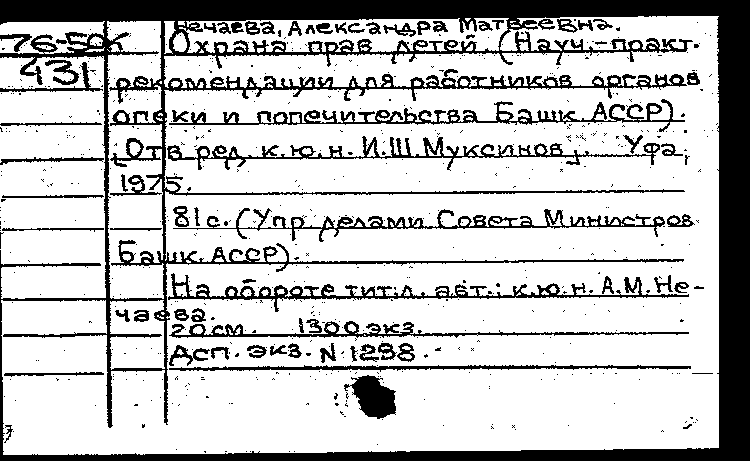 Нечаева, Александра Матвеевна.
76-50к Охрана прав детей. (Науч.-практ.
431 рекомендации для работников органов
опеки и попечительства Башк. АССР).
[Отв. ред. к.ю.н. И.Ш. Муксинов]. Уфа,
1975.
81с. (Упр. делами Совета Министров
Башк. АССР).
На обороте тит.л. авт.: к.ю.н. А.М. Не-
чаева.
20см. 1300 экз.
Дсп. экз. N 1298.